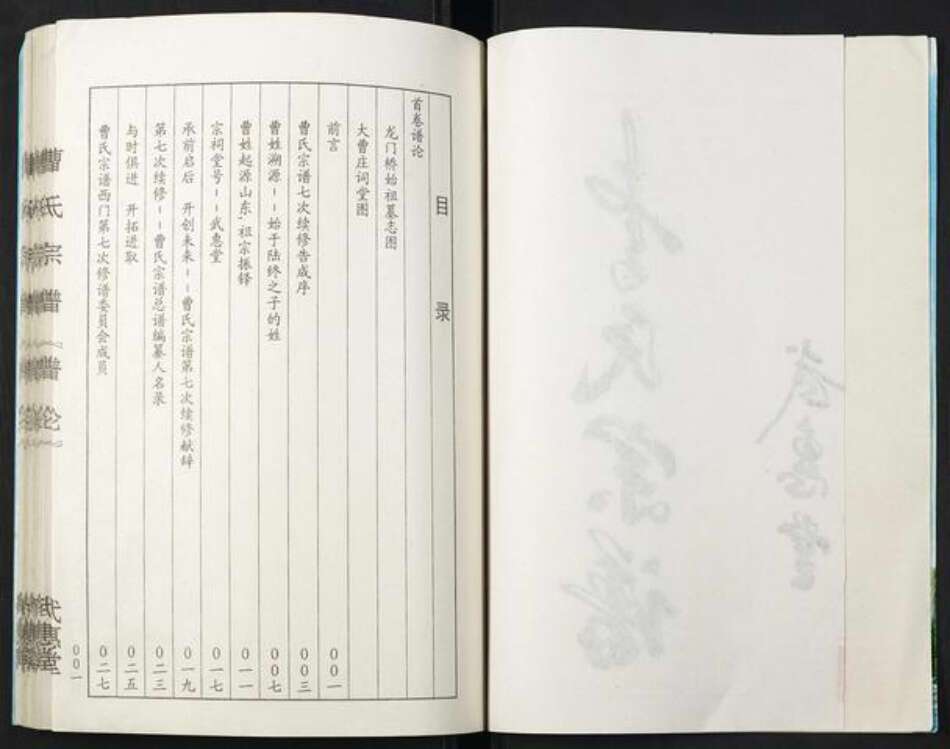 目录
首卷谱论
龙门桥始祖墓志图
大曹庄词堂图
前言 001
曹氏宗谱七次续修告成序 003
曹姓溯源--始于陆终之子的姓 007
曹姓起源山东,祖宗振铎 011
宗祠堂号--武惠堂 017
承前启后 开创未来--曹氏宗谱第七次续修献辞 0一九
第七次续修--曹氏宗谱总谱编纂人名录 0二三
与时俱进 开拓进取 0二五
曹氏宗谱西门第七次修谱委员会成员 0二七
00一
曹氏宗谱(谱论)
武惠堂
武惠堂
曹氏宗谱